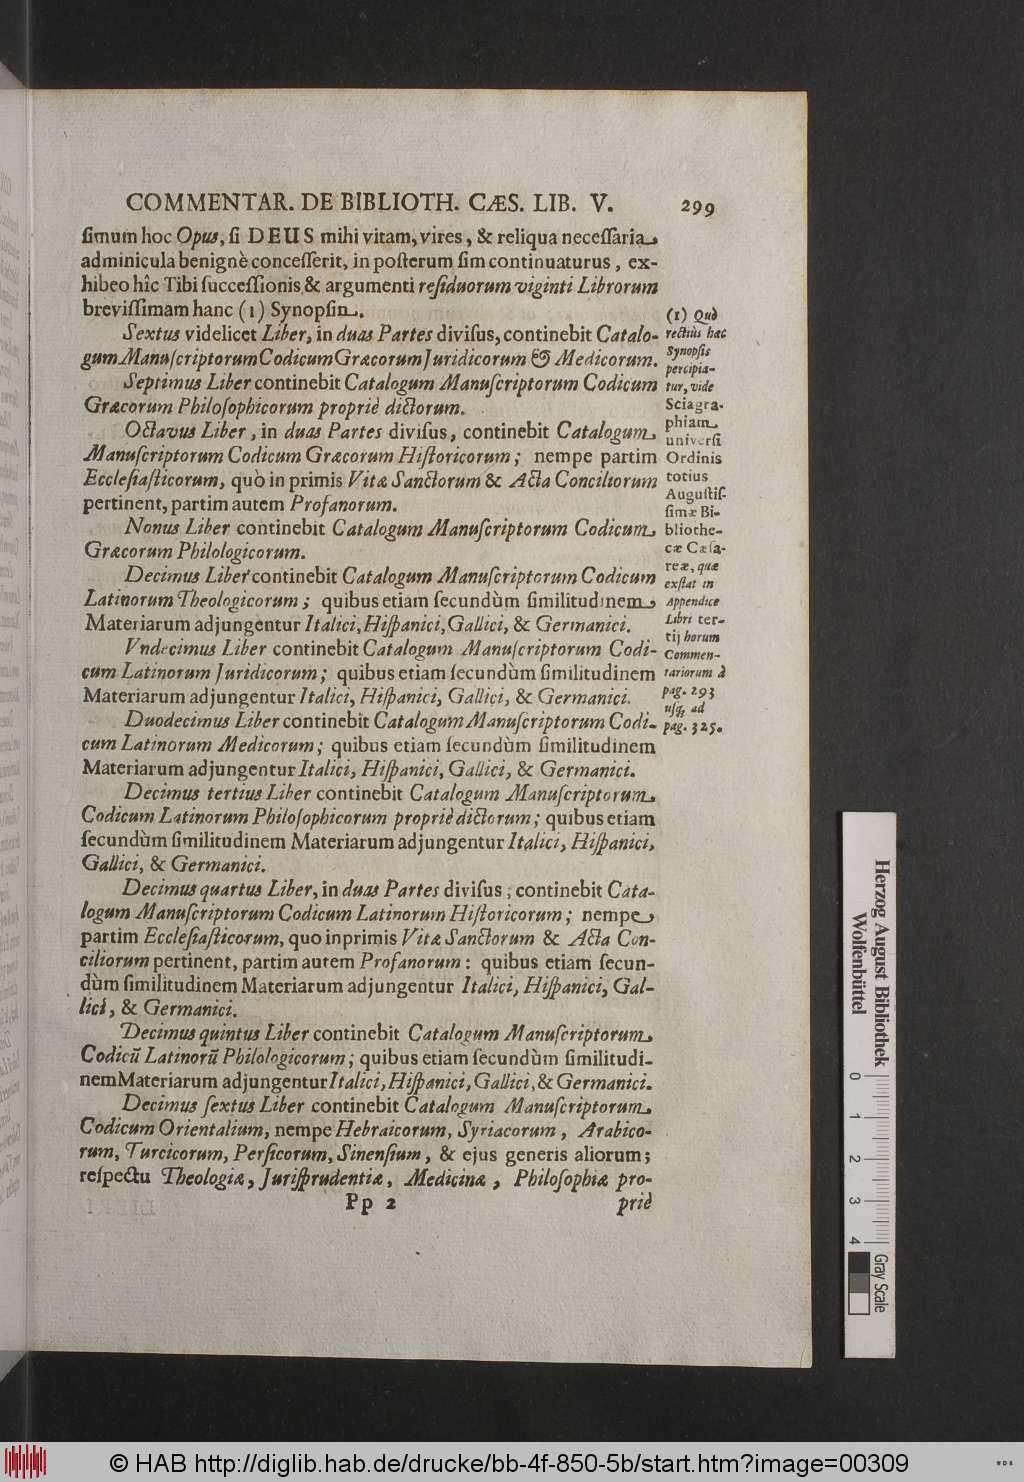 COMMENTAR. DE BIBLIOTH. CÆS. LIB. V. 299
ſimum hoc Opus, ſi DEUS mihi vitam, vires, & reliqua neceſſaria
adminicula benignè conceſſerit, in poſterum ſim continuaturus, ex-
hibeo hîc Tibi ſucceſſionis & argumenti reſiduorum viginti Librorum
breviſſimam hanc (1) Synopſin.
Sextus videlicet Liber, in duas Partes diviſus, continebit Catalo-
gum Manuſcriptorum Codicum Græcorum Juridicorum & Medicorum.
Septimus Liber continebit Catalogum Manuſcriptorum Codicum
Græcorum Philoſophicorum propriè dictorum.
Octavus Liber, in duas Partes diviſus, continebit Catalogum
Manuſcriptorum Codicum Græcorum Hiſtoricorum; nempe partim
Eccleſiaſticorum, quò in primis Vitæ Sanctorum & Acta Conciliorum
pertinent, partim autem Profanorum.
Nonus Liber continebit Catalogum Manuſcriptorum Codicum
Græcorum Philologicorum.
Decimus Liber continebit Catalogum Manuſcriptorum Codicum
Latinorum Theologicorum; quibus etiam ſecundùm ſimilitudinem
Materiarum adjungentur Italici, Hiſpanici, Gallici, & Germanici.
Vndecimus Liber continebit Catalogum Manuſcriptorum Codi-
cum Latinorum Juridicorum; quibus etiam ſecundùm ſimilitudinem
Materiarum adjungentur Italici, Hiſpanici, Gallici, & Germanici.
Duodecimus Liber continebit Catalogum Manuſcriptorum Codi-
cum Latinorum Medicorum; quibus etiam ſecundùm ſimilitudinem
Materiarum adjungentur Italici, Hiſpanici, Gallici, & Germanici.
Decimus tertius Liber continebit Catalogum Manuſcriptorum
Codicum Latinorum Philoſophicorum propriè dictorum; quibus etiam
ſecundùm ſimilitudinem Materiarum adjungentur Italici, Hiſpanici,
Gallici, & Germanici.
Decimus quartus Liber, in duas Partes diviſus, continebit Cata-
logum Manuſcriptorum Codicum Latinorum Hiſtoricorum; nempe
partim Eccleſiaſticorum, quo inprimis Vitæ Sanctorum & Acta Con-
ciliorum pertinent, partim autem Profanorum: quibus etiam ſecun-
dùm ſimilitudinem Materiarum adjungentur Italici, Hiſpanici, Gal-
lici, & Germanici.
Decimus quintus Liber continebit Catalogum Manuſcriptorum
Codicū Latinorū Philologicorum; quibus etiam ſecundùm ſimilitudi-
nem Materiarum adjungentur Italici, Hiſpanici, Gallici, & Germanici.
Decimus ſextus Liber continebit Catalogum Manuſcriptorum
Codicum Orientalium, nempe Hebraicorum, Syriacorum, Arabico-
rum, Turcicorum, Perſicorum, Sinenſium, & ejus generis aliorum;
reſpectu Theologiæ, Jurisprudentiæ, Medicinæ, Philoſophiæ pro-
Pp 2 priè
(1) Quò
rectiùs hæc
Synopſis
percipia-
tur, vide
Sciagra-
phiam
univerſi
Ordinis
totius
Auguſtiſ-
ſimæ Bi-
bliothe-
cæ Cæſa-
reæ, quæ
exſtat in
Appendice
Libri ter-
tij horum
Commen-
tariorum à
pag. 293
uſq; ad
pag. 325.
Herzog August Bibliothek
Wolfenbüttel
0 1 2 3 4
Gray Scale
© HAB http://diglib.hab.de/drucke/bb-4f-850-5b/start.htm?image=00309